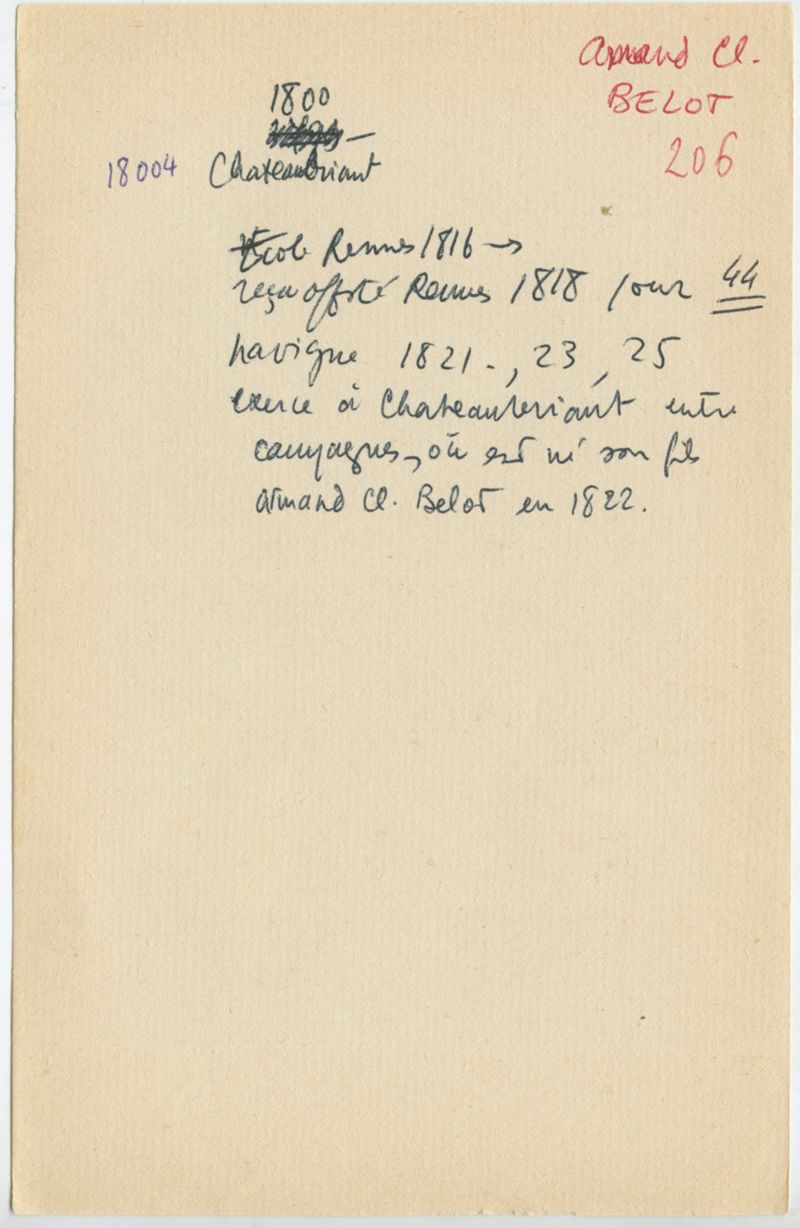 Armand Cl.
BELOT
206
1800
18004 Chateaubriant
Ecole Rennes 1816 →
reçu offsté Rennes 1818 pour 44
navigue 1821 - , 23 , 25
exerce à Chateaubriant entre
campagnes, où est né son fils
Armand Cl. Belot en 1822.